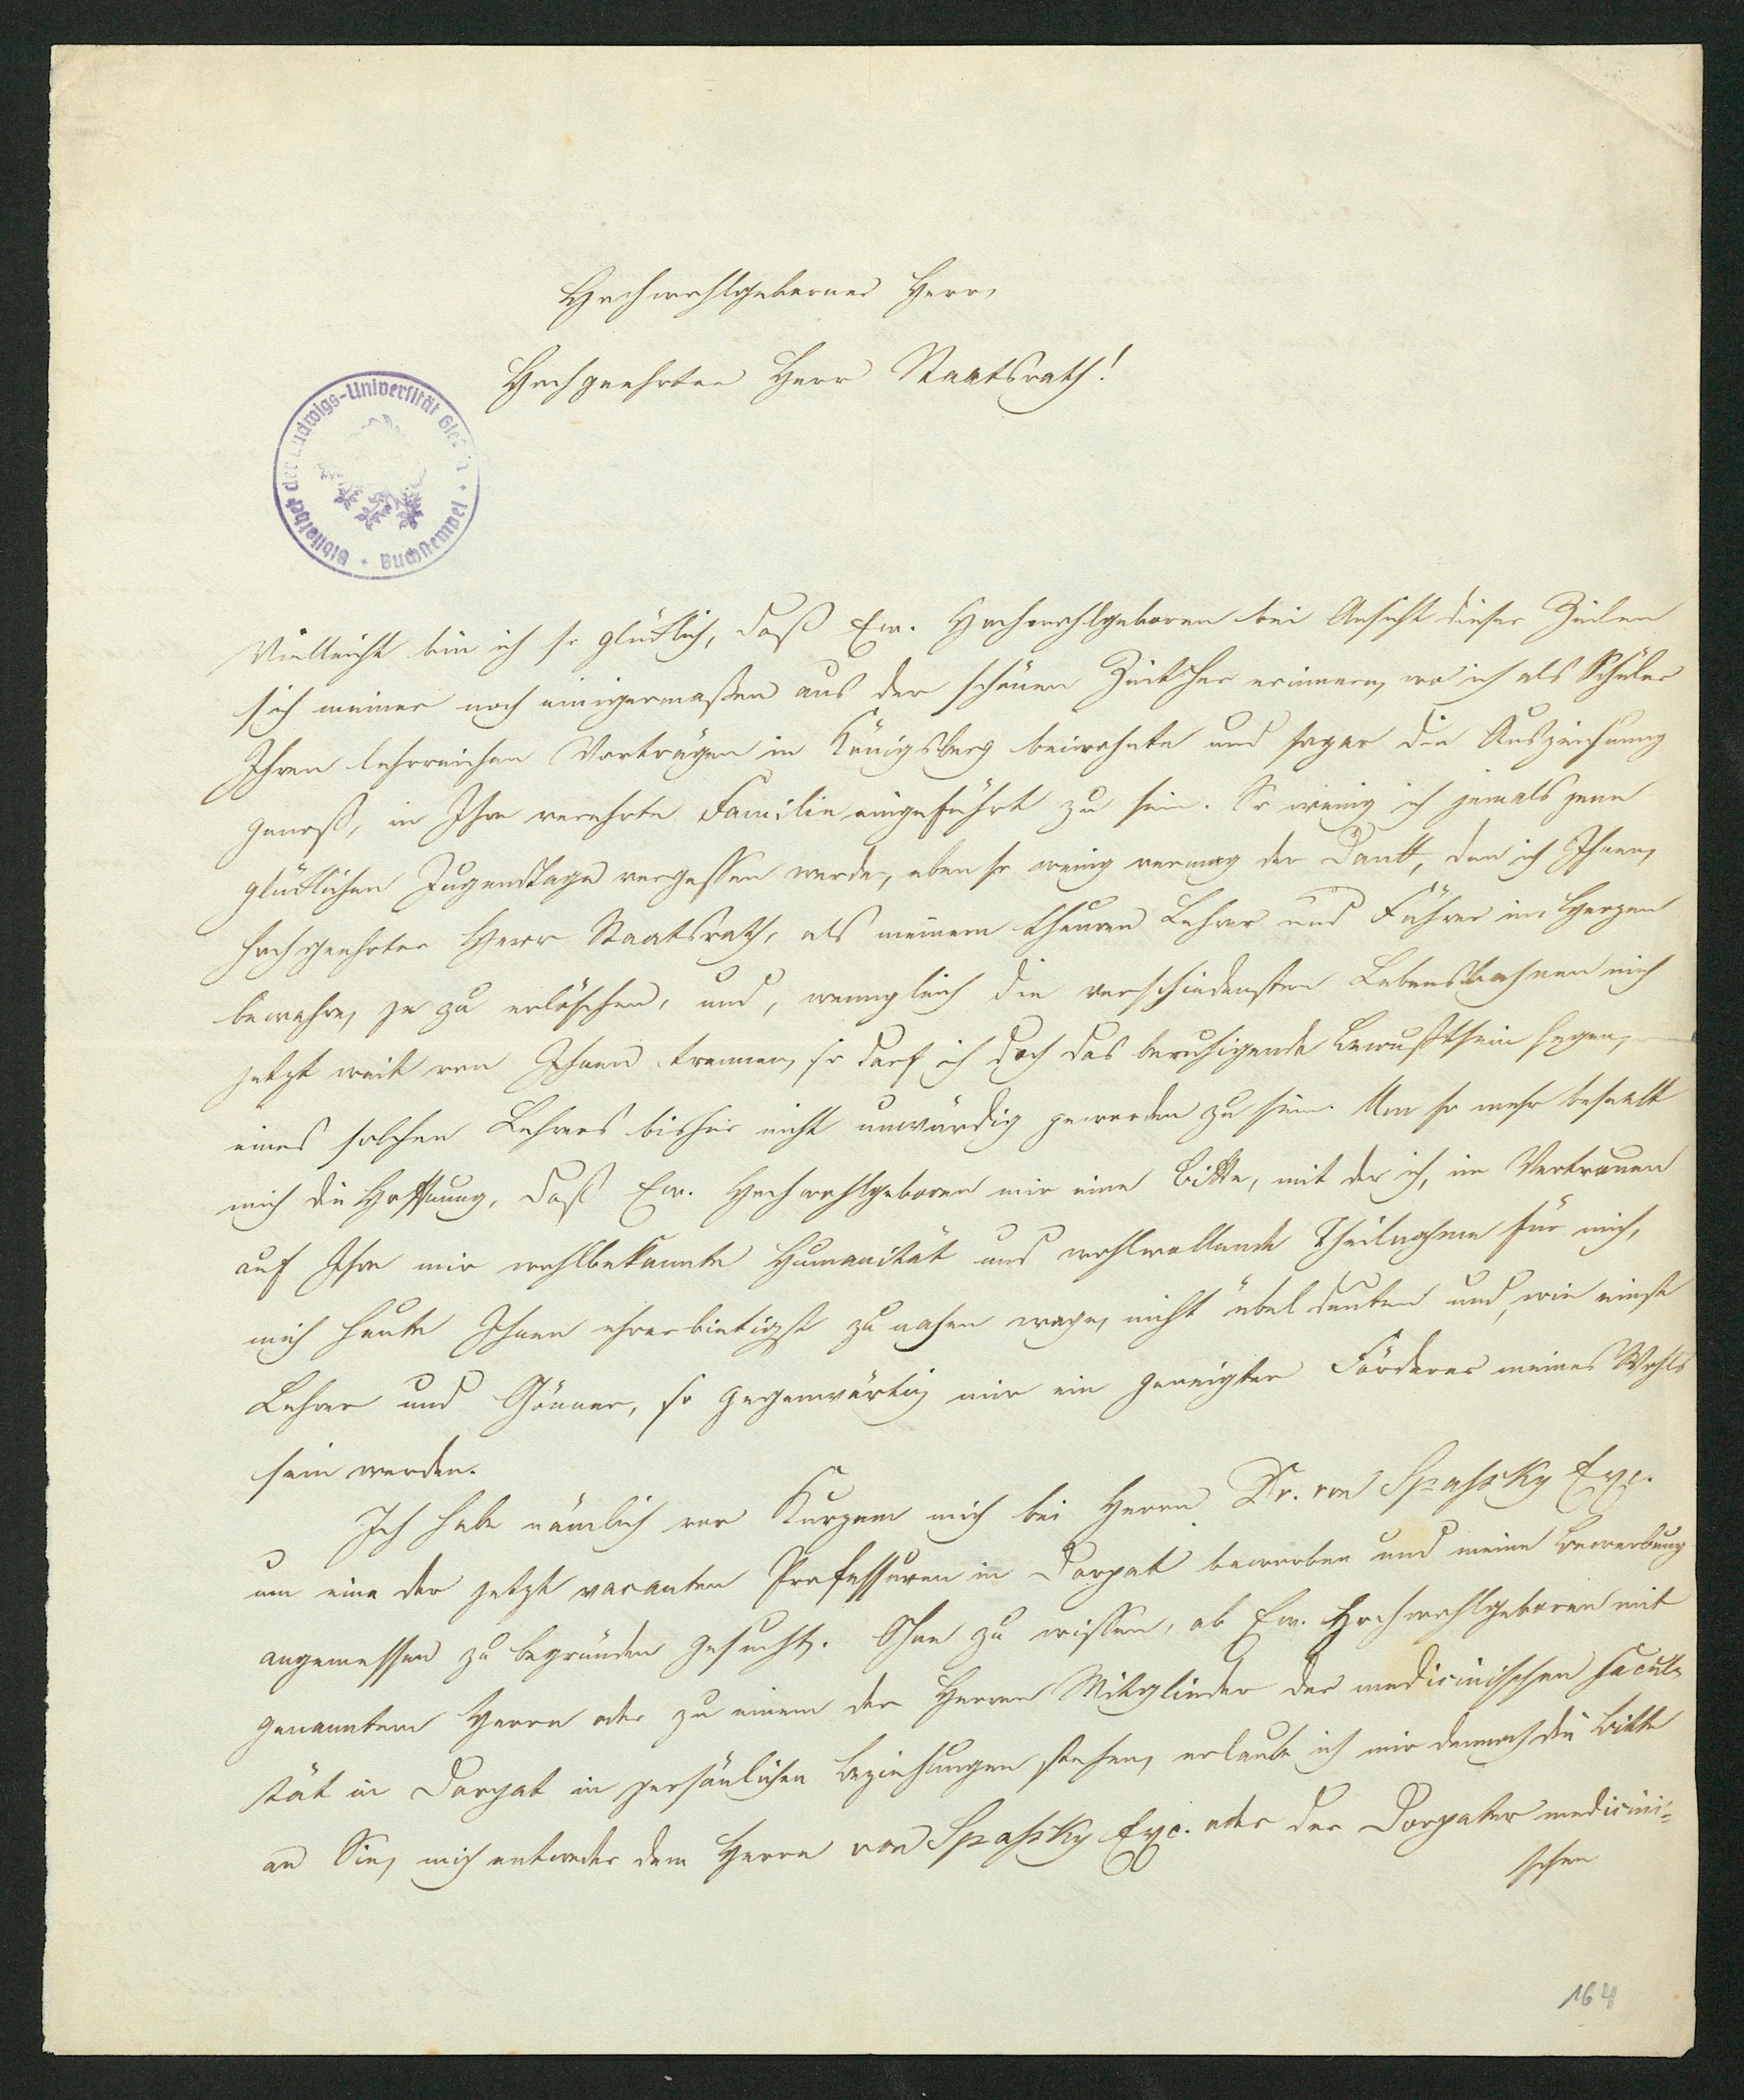 Hochwohlgeborner Herr,
Hochgeehrter Herr Staatsrath!
Bibliothek der Ludwigs-Universität Giessen • Buchstempel •
Vielleicht bin ich so glücklich, daß Ew. Hochwohlgeboren bei Ansicht dieser Zeilen
sich meiner noch einigermaßen aus der schönen Zeit her erinnern, wo ich als Schüler
Ihren lehrreichen Vorträgen in Königsberg beiwohnte und sogar die Auszeichnung
genoß, in Ihre verehrte Familie eingeführt zu sein. So wenig ich jemals jene
glücklichen Jugendtage vergessen werde, eben so wenig vermag der Dank, den ich Ihnen,
hochgeehrter Herr Staatsrath, als meinem theuren Lehrer und Führer im Herzen
bewahre, je zu erlöschen, und, wenngleich die verschiedensten Lebensbahnen mich
jetzt weit von Ihnen trennen, so darf ich doch das beruhigende Bewußtsein hegen,
eines solchen Lehrers bisher nicht unwürdig geworden zu sein. Um so mehr beseelt
mich die Hoffnung, daß Ew. Hochwohlgeboren mir eine Bitte, mit der ich, im Vertrauen
auf Ihre mir wohlbekannte Humanität und wohlwollende Theilnahme für mich,
mich heute Ihnen ehrerbietigst zu nahen wage, nicht übel deuten und, wie einst
Lehrer und Gönner, so gegenwärtig mir ein geneigter Förderer meines Wohls
sein werden.
Ich habe nämlich vor Kurzem mich bei Herrn Dr. von Spassky Exc.
um eine der jetzt vacanten Professuren in Dorpat beworben und meine Bewerbung
angemessen zu begründen gesucht. Ohne zu wissen, ob Ew. Hochwohlgeboren mit
genanntem Herrn oder zu einem der Herren Mitglieder der medicinischen Facul-
tät in Dorpat in persönlichen Beziehungen stehen, erlaube ich mir dennoch die Bitte
an Sie, mich entweder dem Herrn von Spassky Exc. oder der Dorpater medicini-
schen
164